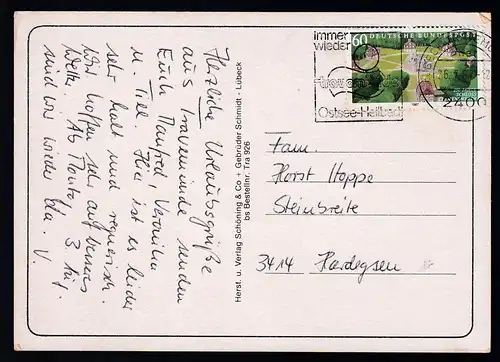 Herzliche Urlaubsgrüße
aus Travemünde senden
Euch Manfred, Veronika
u. Hier ist es leider
sehr kalt und regnerisch.
Wir hoffen sehr auf besseres
Wetter. Ab Montag 3 Tag.
sind wir wieder da. V.
Herst. u. Verlag Schöning & Co + Gebrüder Schmidt - Lübeck
bs Bestellnr. Tra 926
immer
wieder
travem
Ostsee-Heilbad
60 DEUTSCHE BUNDESPOST
2400
Fam.
Horst Hoppe
Steinbreite
3414 Hardegsen